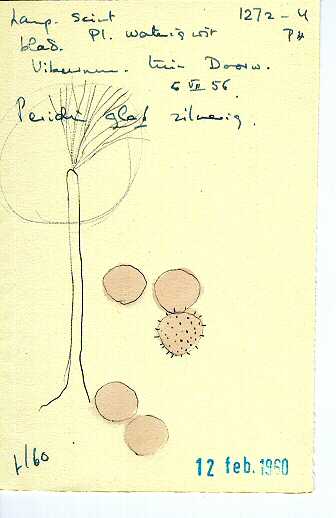 Lamp. scint 1272-4
blad. Pl. waterig wit P#
Viburnum. tuin Doorw.
6 VII 56
Peridie glad zilverig.
1/60
12 feb. 1960